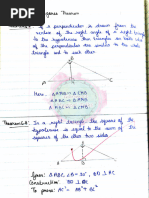 Pythagoras Theorem
Theorem 6.7 If a perpendicular is drawn from the
vertex of the right angle of a right triangle
to the hypotenuse then triangles on both sides
of the perpendicular are similar to the whole
triangle and to each other
Here, △APB ~ △CPB
△APB ~ △ABC
△BPC ~ △ABC
Theorem 6.8 In a right triangle, the square of the
hypotenuse is equal to the sum of the
squares of the other two sides.
Given: △ABC, ∠B = 90°, BD ⊥ AC
Construction: BD ⊥ AC
To prove: AC² = AB² + BC²